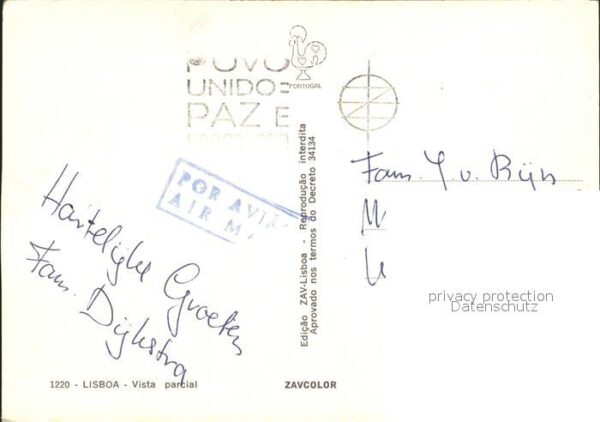 POVO
UNIDO=
PAZ E
PORTUGAL
POR AVIÃ
AIR M
Hartelijke Groeten
Fam. Dijkstra
Edição ZAV-Lisboa - Reprodução interdita
Aprovado nos termos do Decreto 34134
Fam. Y. v. Rijn
privacy protection
Datenschutz
1220 - LISBOA - Vista parcial
ZAVCOLOR